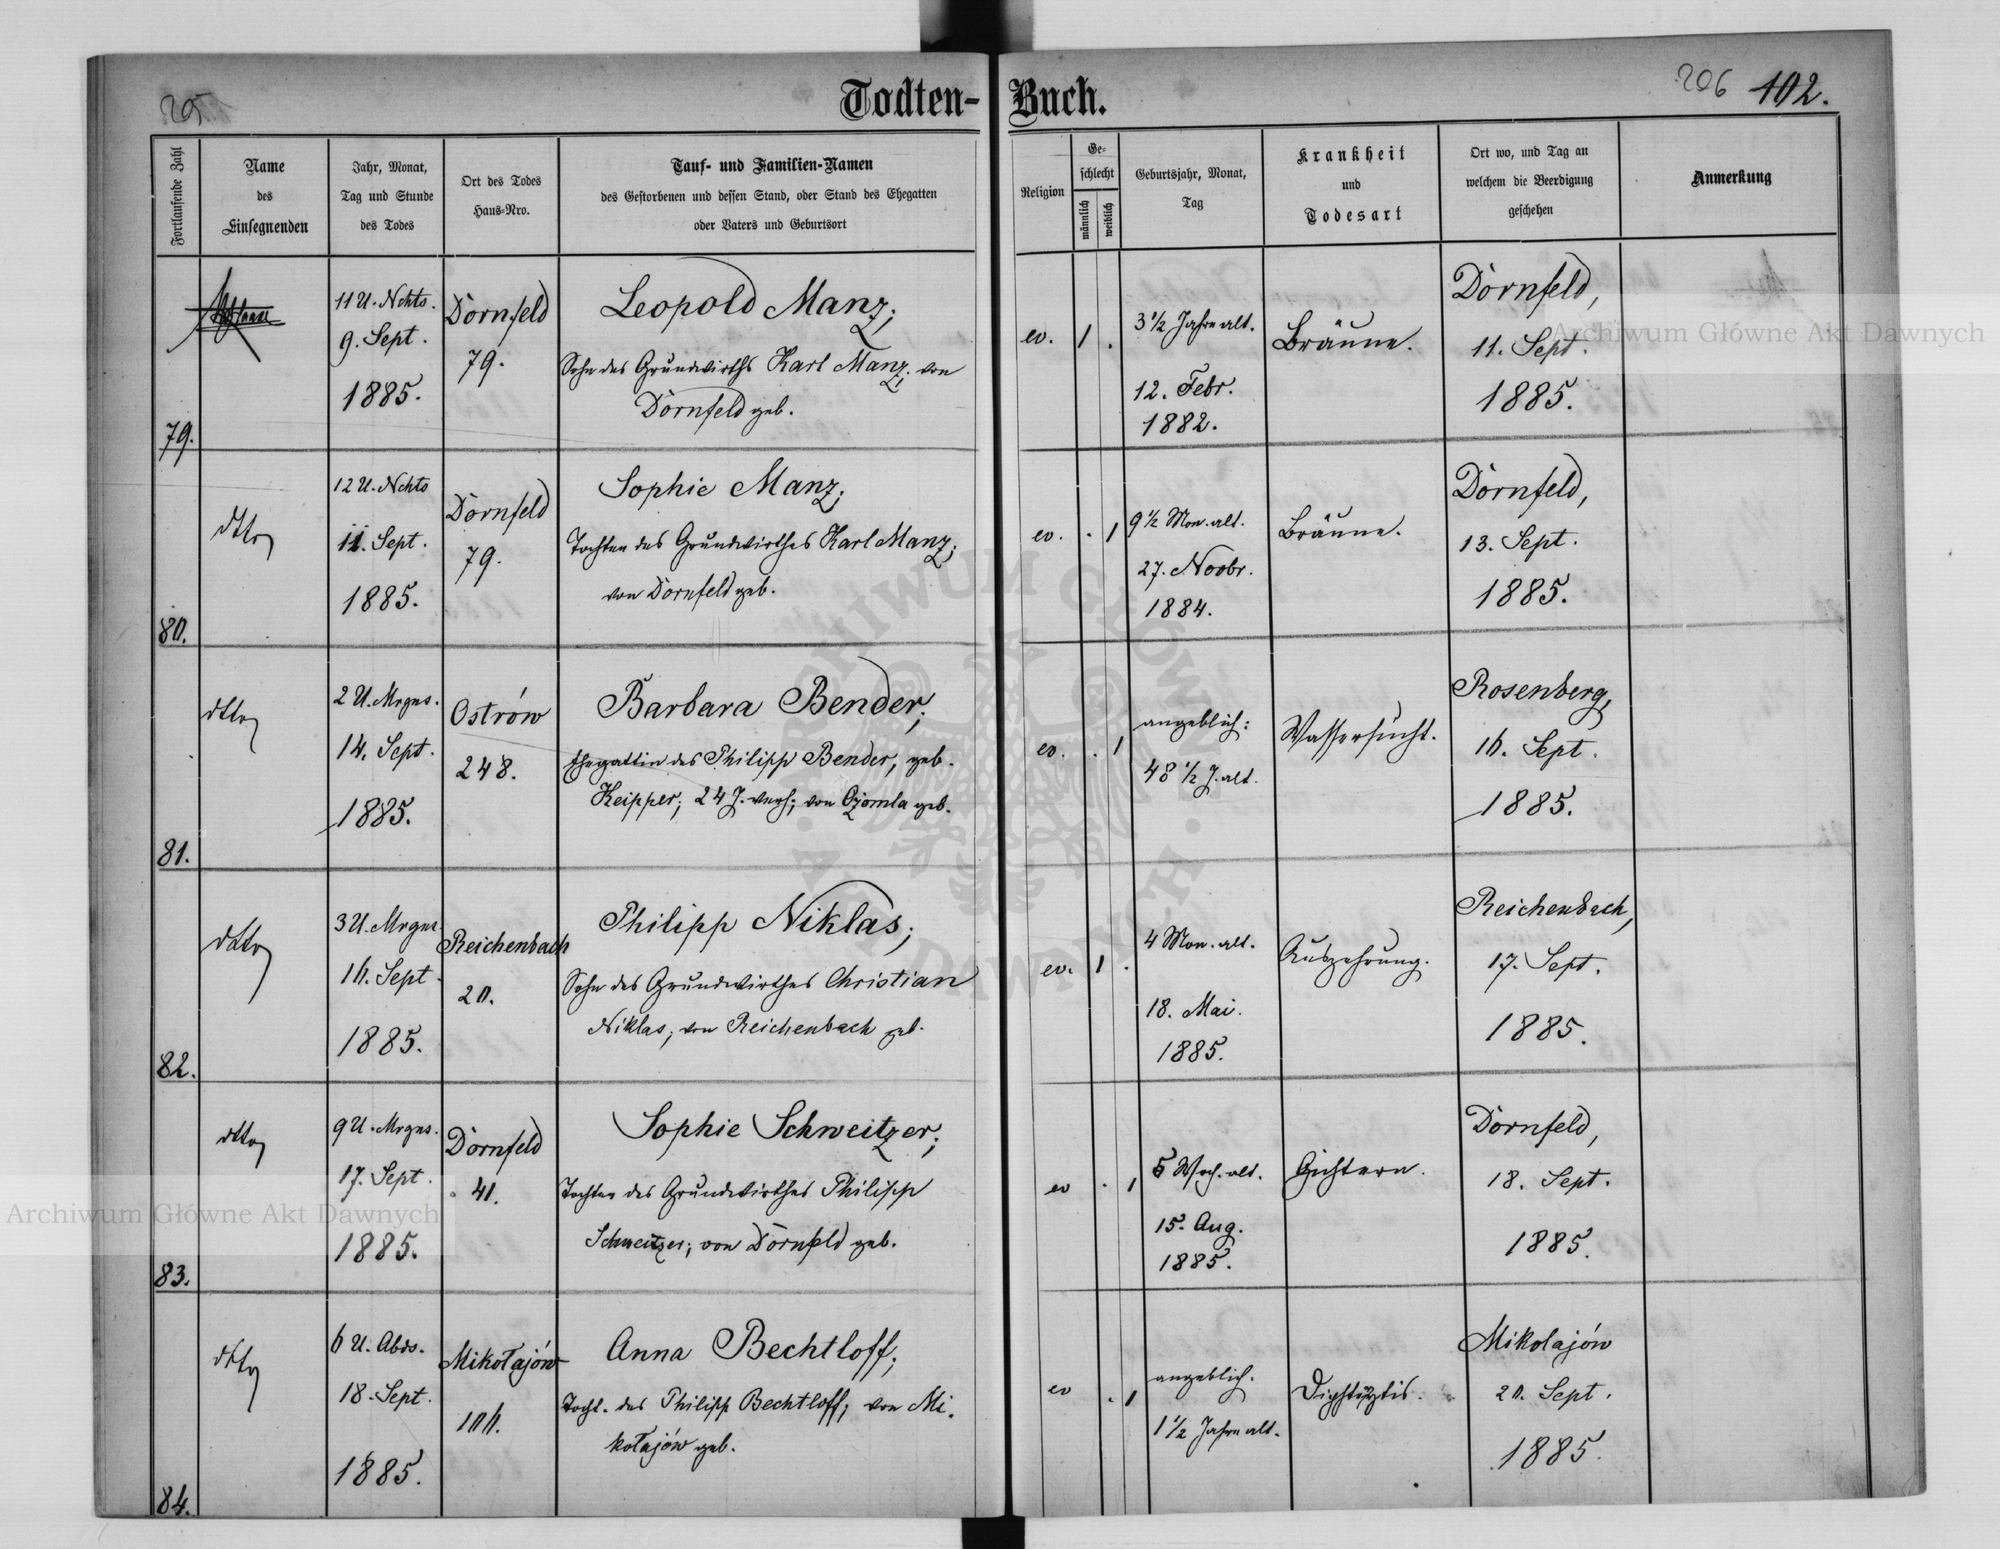 205
Todten-Buch.
206 102.
Fortlaufende Zahl
Name
des
Einsegnenden
Jahr, Monat,
Tag und Stunde
des Todes
Ort des Todes
Haus-Nro.
Tauf- und Familien-Namen
des Gestorbenen und dessen Stand, oder Stand des Ehegatten
oder Vaters und Geburtsort
Religion
Ge-
schlecht
männlich
weiblich
Geburtsjahr, Monat,
Tag
Krankheit
und
Todesart
Ort wo, und Tag an
welchem die Beerdigung
geschehen
Anmerkung
79.
11 U. Nchts.
9. Sept.
1885.
Dornfeld
79.
Leopold Manz;
Sohn des Grundwirths Karl Manz, von
Dornfeld geb.
ev.
1 .
3 1/2 Jahre alt.
12. Febr.
1882.
Bräune.
Dornfeld,
11. Sept.
1885.
80.
dtto
12 U. Nchts
11. Sept.
1885.
Dornfeld
79.
Sophie Manz;
Tochter des Grundwirthes Karl Manz;
von Dornfeld geb.
ev.
. 1
9 1/2 Mon. alt.
27. Novbr.
1884.
Bräune.
Dornfeld,
13. Sept.
1885.
81.
dtto
2 U. Mrgns.
14. Sept.
1885.
Ostrów
248.
Barbara Bender;
Ehegattin des Philipp Bender, geb.
Keipper; 24 J. verh; von geb.
ev.
. 1
angeblich:
48 1/2 J. alt.
Wassersucht.
Rosenberg,
16. Sept.
1885.
82.
dtto
3 U. Mrgns
16. Sept.
1885.
Reichenbach
20.
Philipp Niklas;
Sohn des Grundwirthes Christian
Niklas, von Reichenbach geb.
ev.
1 .
4 Mon. alt.
18. Mai.
1885.
Auszehrung.
Reichenbach,
17. Sept.
1885.
83.
dtto
9 U. Mrgns.
17. Sept.
1885.
Dornfeld
41.
Sophie Schweitzer;
Tochter des Grundwirthes Philipp
Schweitzer; von Dornfeld geb.
ev
. 1
5 Woch. alt.
15. Aug.
1885.
Gichtern.
Dornfeld,
18. Sept.
1885.
84.
dtto
6 U. Abds.
18. Sept.
1885.
Mikołajów
106.
Anna Bechtloff;
Tocht. des Philipp Bechtloff; von Mi-
kołajów geb.
ev
. 1
angeblich.
1 1/2 Jahre alt.
Mikolajów
20. Sept.
1885.
Archiwum Główne Akt Dawnych
Archiwum Główne Akt Dawnych
ARCHIWUM GŁÓWNE AKT DAWNYCH